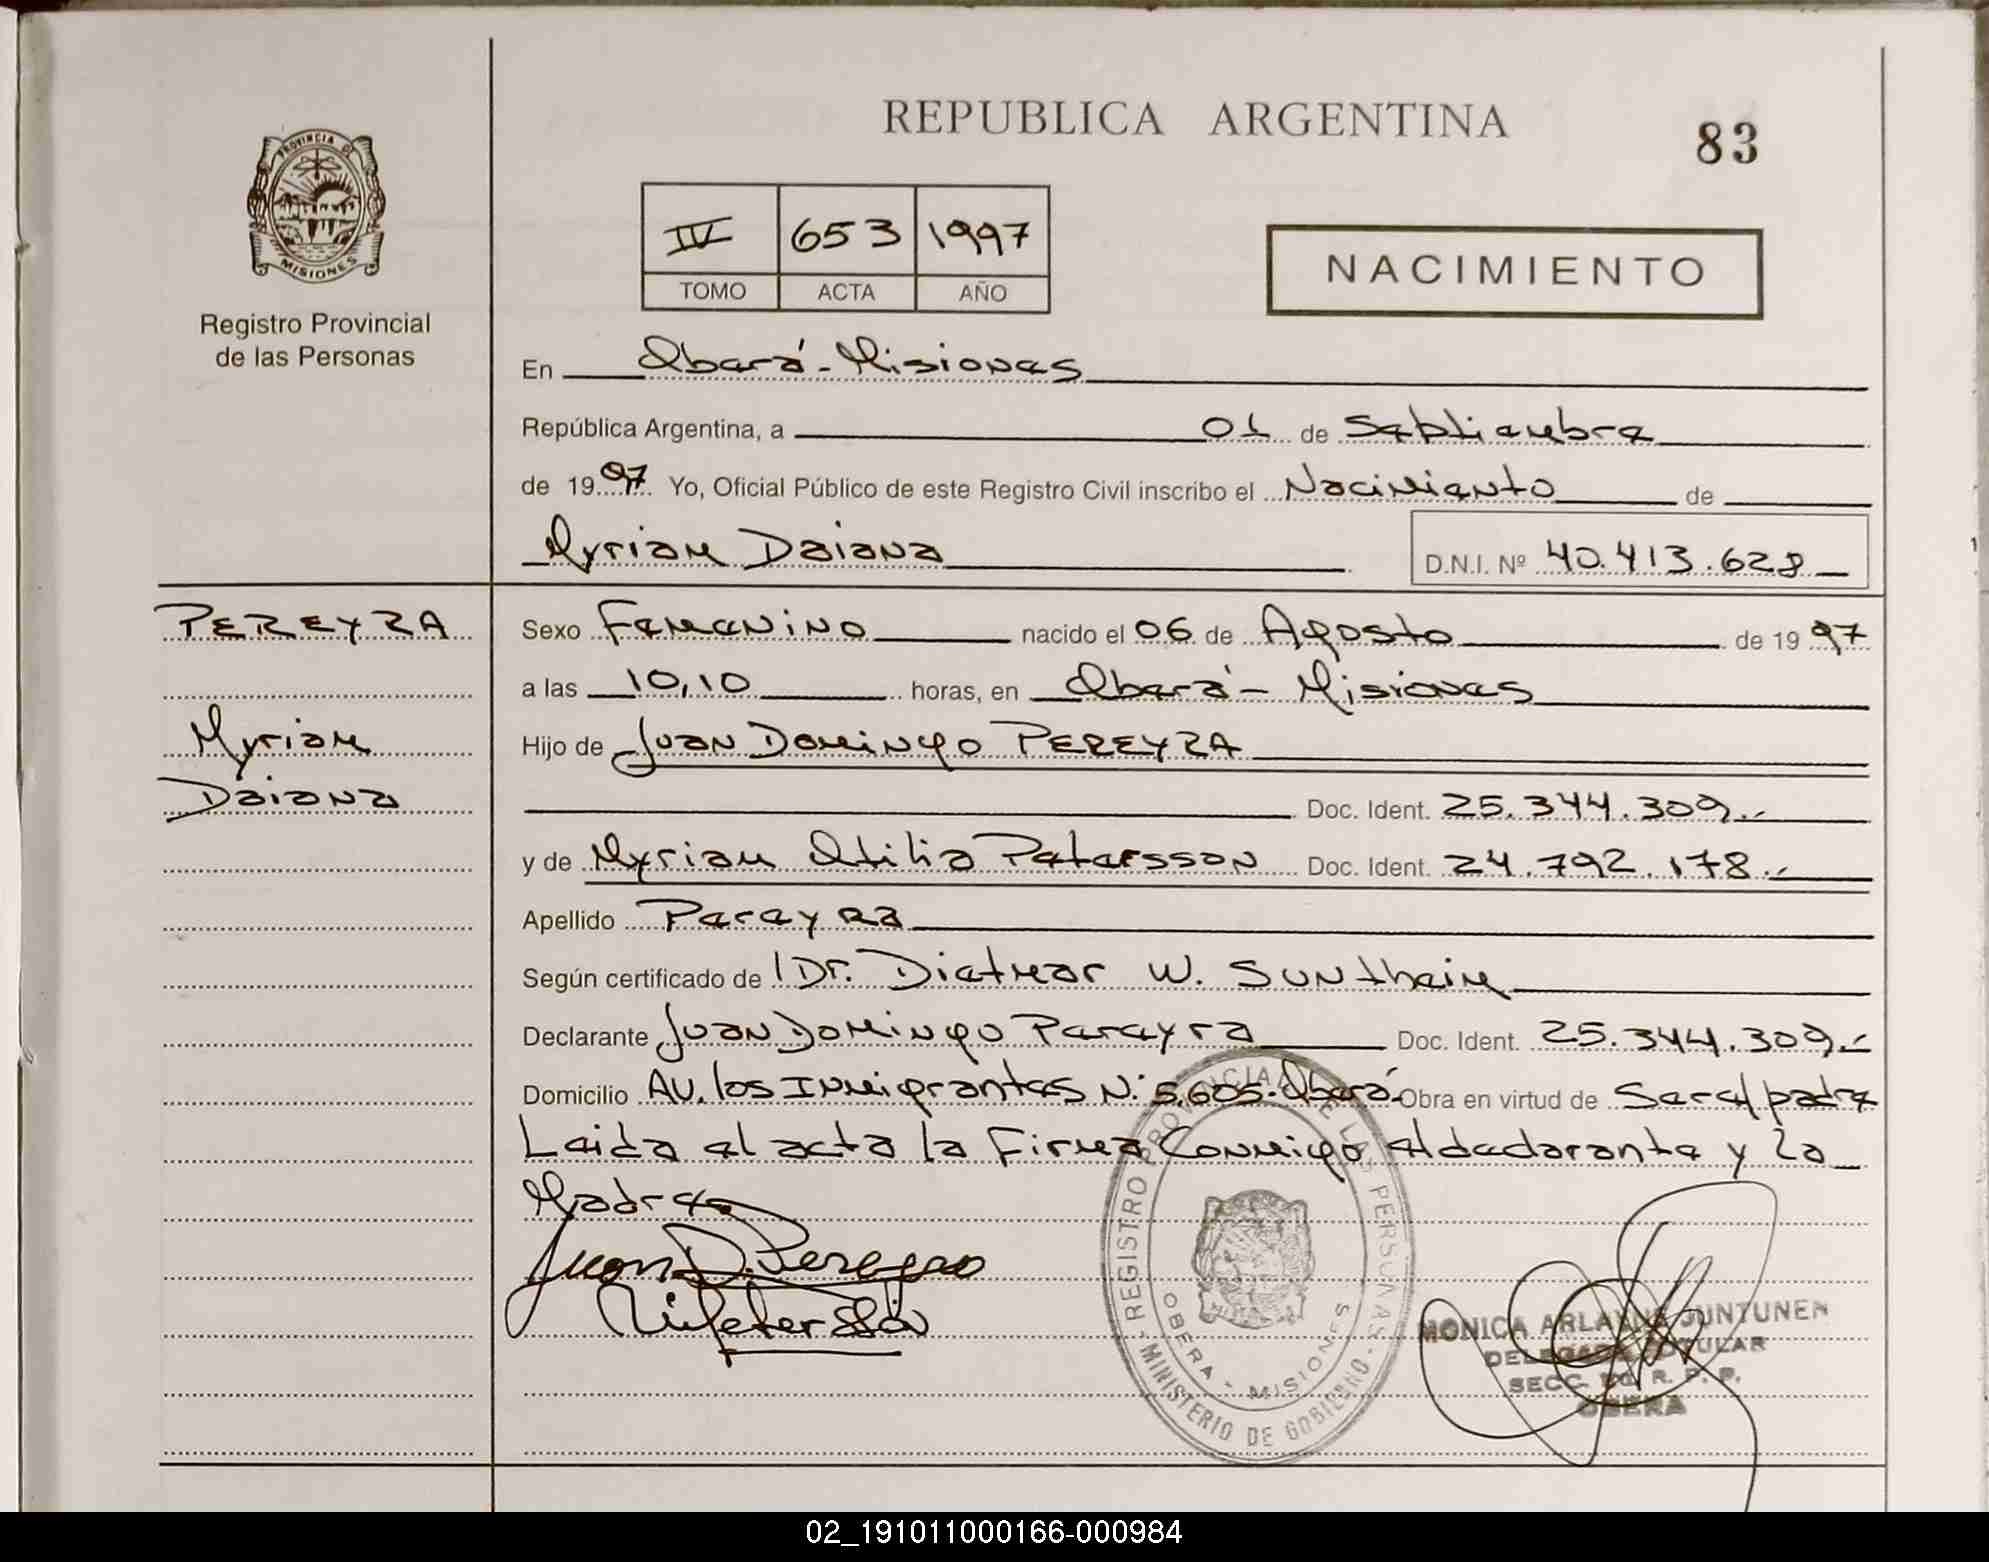 REPUBLICA ARGENTINA
83
PROVINCIA DE
MISIONES
Registro Provincial
de las Personas
IV 653 1997
TOMO ACTA AÑO
NACIMIENTO
En Oberá - Misiones
República Argentina, a 01 de Septiembre
de 1997 Yo, Oficial Público de este Registro Civil inscribo el Nacimiento de
Myriam Daiana
D.N.I. Nº 40.413.628
PEREYRA
Myriam
Daiana
Sexo Femenino nacido el 06 de Agosto de 1997
a las 10,10 horas, en Oberá - Misiones
Hijo de Juan Domingo PEREYRA
Doc. Ident. 25.344.309.-
y de Myriam Otilia Petersson Doc. Ident. 24.792.178.-
Apellido Pereyra
Según certificado de Dr. Dietmar W. Suntheim
Declarante Juan Domingo Pereyra Doc. Ident. 25.344.309.-
Domicilio Av. los Inmigrantes N: 5.605-Oberá- Obra en virtud de Ser el padre
Leida el acta la Firma Conmigo el declarante y la
Madre.
Juan D. Pereyra
REGISTRO PROVINCIAL DE LAS PERSONAS
MINISTERIO DE GOBIERNO
OBERA - MISIONES
MONICA ARLAYNE JUNTUNEN
DELEGADA TITULAR
SECC. R. P. P.
OBERA
02_191011000166-000984